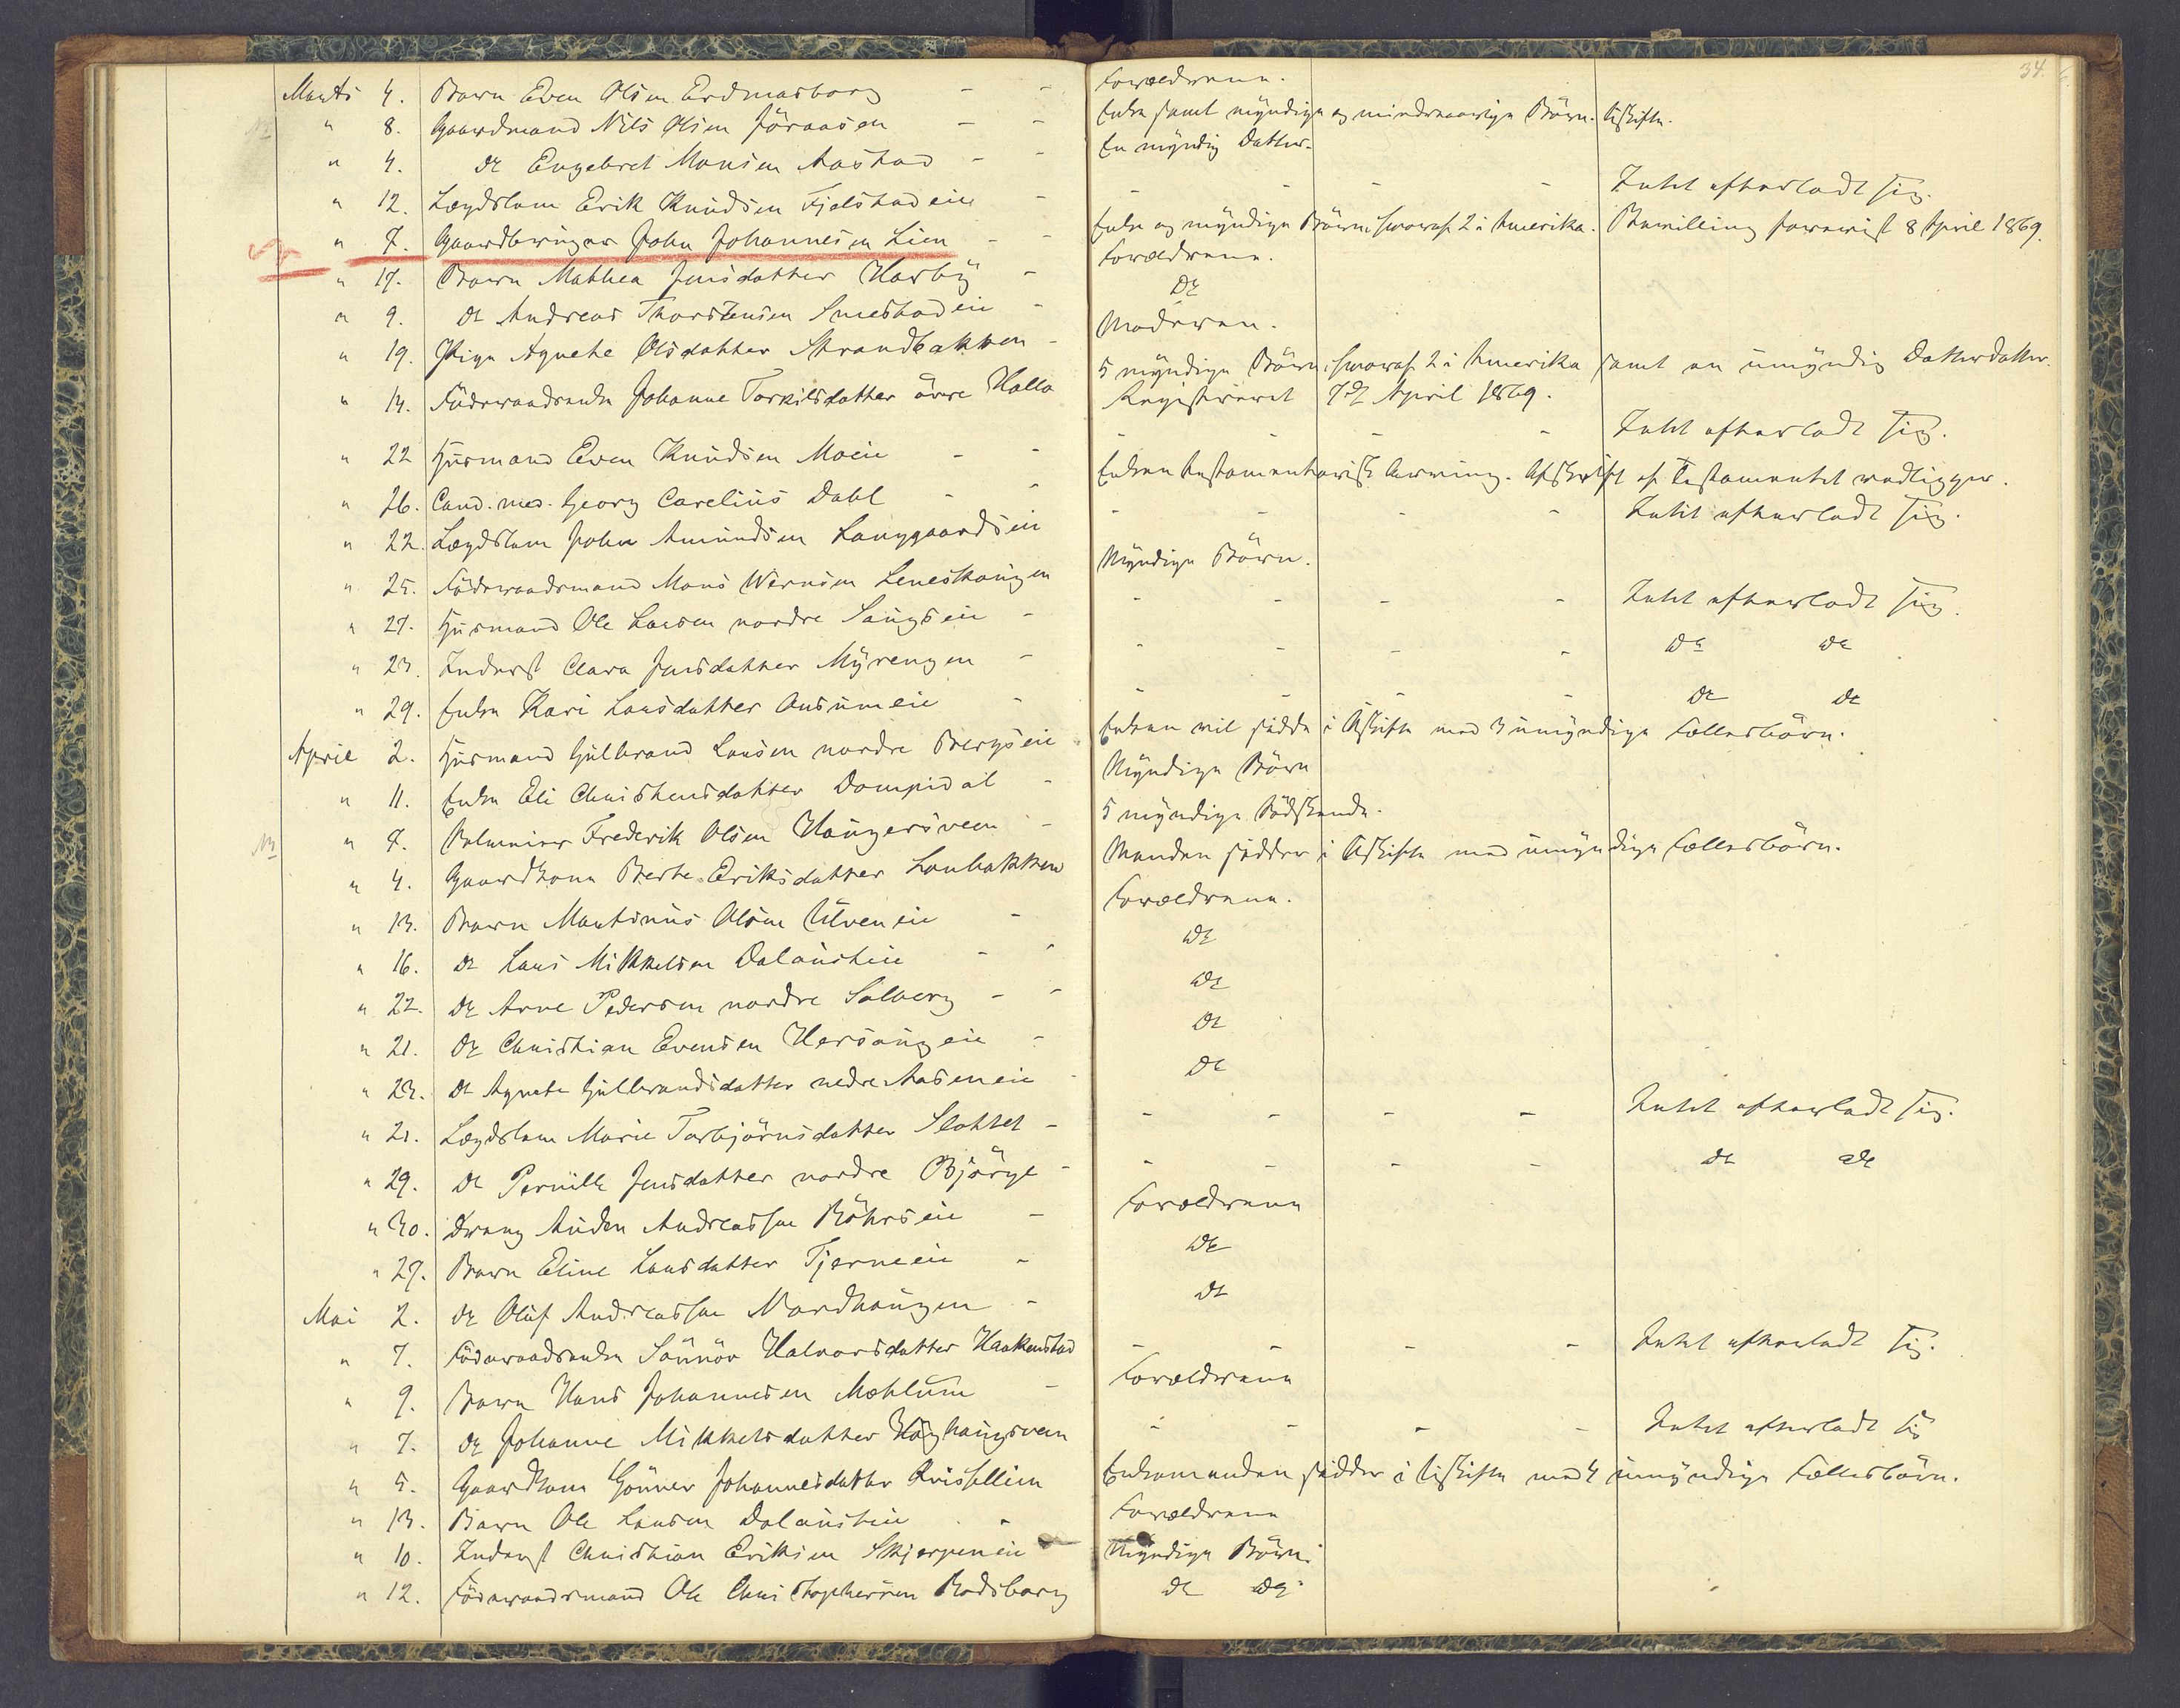 34.
Marts 4. Barn Even Olsen Erdmasborg - - Forældrene.
" 8. Gaardmand Nils Olsen Föraasen - - Enke samt myndige og mindreaarige Börn. Uskifte.
" 4. do Engebret Monsen Aastad - - En myndig Datter.
" 12. Lægdslem Erik Knudsen Fjelstadeie - - - - - Intet efterladt sig.
" 7. Gaardbruger John Johannesen Lien - - Enke og myndige Börn, hvoraf 2 i Amerika. Bevilling forevist 8 April 1869.
" 17. Barn Mathea Jensdatter Harby - Forældrene.
" 9. do Andreas Thorstensen Smestadeie - do
" 19. Pige Agnethe Olsdatter Strandbakken - Moderen.
" 14. Föderaadsenke Johanne Torkilsdatter övre Halla 5 myndige Börn, hvoraf 2 i Amerika samt en umyndig Datterdatter.
Registreret 7de April 1869.
" 22 Husmand Even Knudsen Moeie - - - - - - Intet efterladt sig.
" 26. Cand. med. Georg Carelius Dahl - - Enken testamentarisk Arving. Afskrift af Testamentet vedligger.
" 22. Lægdslem John Amundsen Langgaardseie - - - - Intet efterladt sig.
" 25. Föderaadsmand Mons Wernsen Leneshaugen Myndige Börn.
" 27. Husmand Ole Larsen nordre Saugseie - - - - - Intet efterladt sig.
" 23. Inderst Clara Jensdatter Myrengen - - - - - do do
" 29. Enke Kari Larsdatter Ousumeie - - - - - do do
April 2. Husmand Gulbrand Larsen nordre Bergseie Enken vil sidde i Uskifte med 3 umyndige Fællesbörn.
" 11. Enke Eli Christensdatter Dompidal - Myndige Börn
" 7. Frederik Olsen Haugersveen - 5 myndige Södskende.
" 4. Gaardkone Berte Eriksdatter Lonbakken Manden sidder i Uskifte med umyndige Fællesbörn.
" 13. Barn Martinus Olsen Ulveneie - Forældrene.
" 16. do Lars Mikkelsen Dalausteie - - do
" 22. do Arne Pedersen nordre Solberg - - do
" 21. do Christian Evensen Hersaugeie - do
" 23. do Agnete Gulbrandsdatter nedre Aaseneie - do
" 21. Lægdslem Marie Torbjörnsdatter Slottet - - - - - Intet efterladt sig.
" 29. do Pernille Jensdatter nordre Björge - - - - - do do
" 30. Dreng Auden Andreassen Röhrseie - Forældrene
" 27. Barn Eline Larsdatter Tjerneeie - do
Mai 2. do Oluf Andreassen Nordhaugen - do
" 7. Föderaadsenke Sönnöv Halvorsdatter Haakenstad - - - - Intet efterladt sig.
" 9. Barn Hans Johannesen Mæhlum - Forældrene
" 7. do Johanne Mikkelsdatter Höghaugsveen - - - - Intet efterladt sig
" 5. Gaardkone Gönner Johannesdatter Enkemanden sidder i Uskifte med 4 umyndige Fællesbörn.
" 13. Barn Ole Larsen Dalausteie - Forældrene
" 10. Inderst Christian Eriksen Skjerpeneie - Myndige Börn.
" 12. Föderaadsmand Ole Christophersen Rodsborg do do